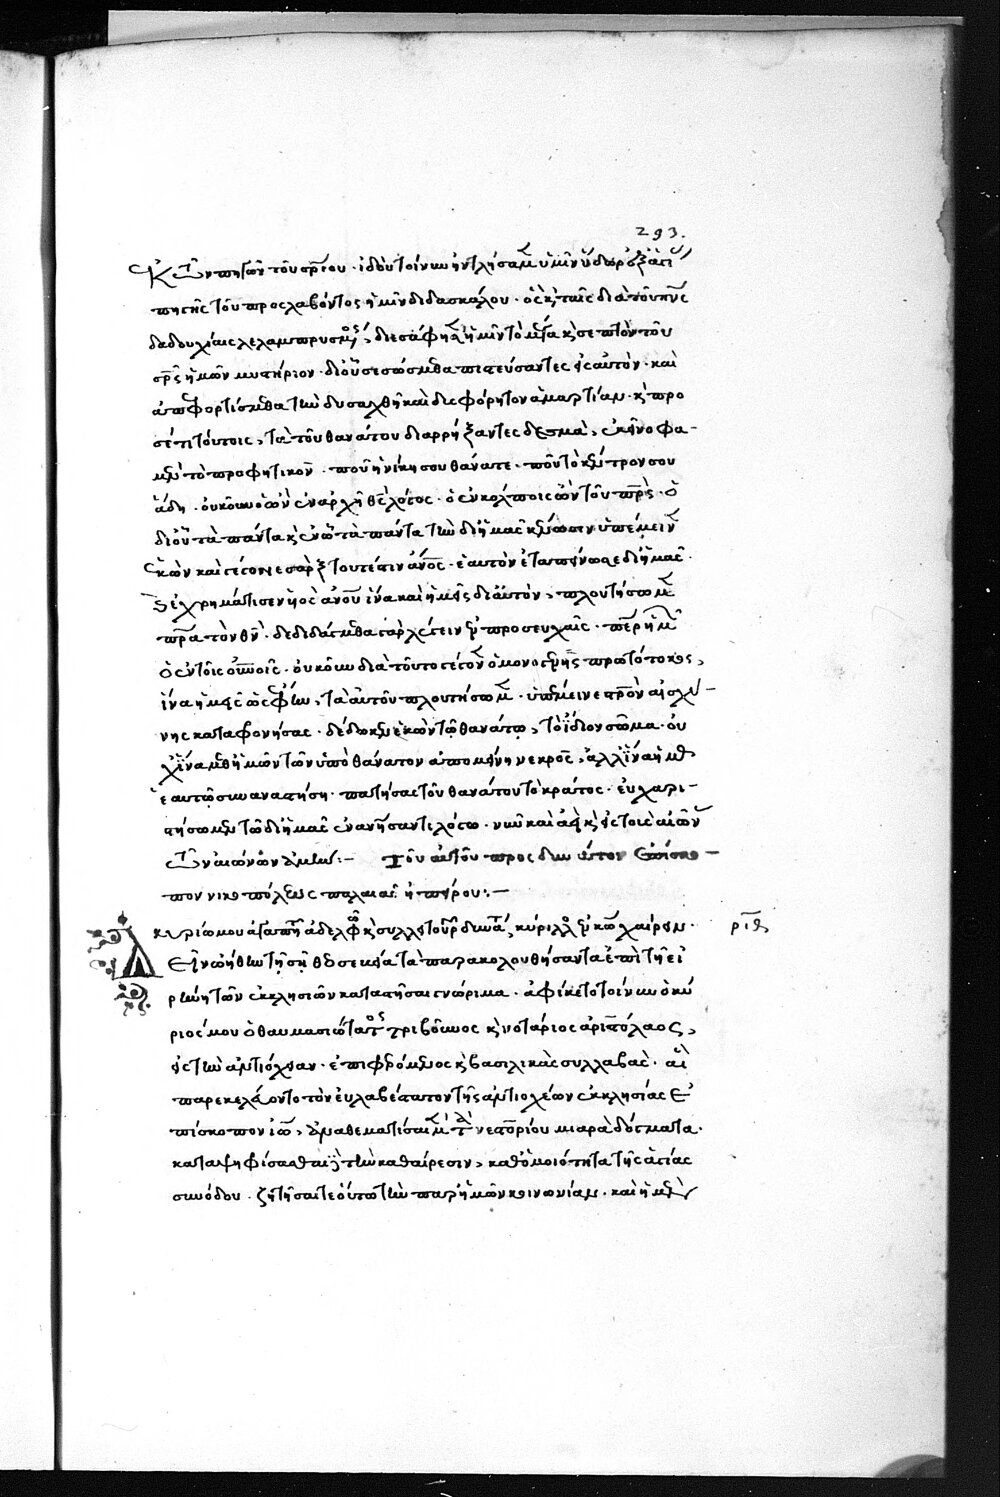 293.
ἐκ τῶν πηγῶν τοῦ σρίου · ἰδοὺ τοίνυν ἠντλήσαμεν ὑμῖν ὕδωρ ἐξ ἁγίας
πηγῆς τοῦ προσλαβόντος ἡμῖν διδασκάλου · ὃς καὶ ταῖς διὰ τοῦ πνς
δαδουχίαις λελαμπρυσμένος, διεσάφησεν ἡμῖν τὸ μέγα καὶ σεπτὸν τοῦ
σρς ἡμῶν μυστήριον · δι' οὗ σεσώσμεθα πιστεύσαντες εἰς αὐτὸν · καὶ
ἀπεφορτισμεθα τὴν δυσαχθῆ καὶ δισφόρητον ἁμαρτίαν · καὶ προ
σέτι τούτοις, τὰ τοῦ θανάτου διαρρήξαντες δεσμὰ, ἐκεῖνο φα-
μὲν τὸ προφητικὸν · ποῦ ἡ νίκη σου θάνατε · ποῦ τὸ κέντρον σου
ἅδη · οὐκοῦν ὁ ὢν ἐν ἀρχῇ θς λόγος · ὁ ἐν κόλποις ὢν τοῦ πρς · ὁ
δι' οὗ τὰ πάντα καὶ ἐν ᾧ τὰ πάντα τὴν δι' ἡμᾶς κένωσιν ὑπέμεινεν
ἑκὼν καὶ γέγονε σὰρξ τουτέστιν ἄνος · ἑαυτὸν ἐταπείνωσε δι' ἡμᾶς ·
κεχρημάτισεν υἱὸς ἀνου ἵνα καὶ ἡμεῖς δι' αὐτὸν, πλουτήσωμεν
πρα τὸν θν · δεδιδάγμεθα γὰρ λέγειν ἐν προσευχαῖς · περ ἡμῶν
ὁ ἐν τοῖς οὐνοις · οὐκοῦν διὰ τοῦτο γέγονεν ὁ μονογενὴς πρωτότοκος,
ἵνα ἡμεῖς ὡς ἔφην, τὰ αὐτοῦ πλουτήσωμεν · ὑπέμεινε σρον αἰσχύ-
νης καταφρονήσας · δέδωκεν ἑκὼν τῷ θανάτῳ, τὸ ἴδιον σῶμα · οὐ
χ ἵνα μεθ' ἡμῶν τῶν ὑπὸ θάνατον ἀπομείνῃ νεκρὸς, ἀλλ' ἵνα ἡμᾶς
ἑαυτῷ συναναστήσῃ · πατήσας τοῦ θανάτου τὸ κράτος · εὐχαρι-
στήσωμεν τῷ δι' ἡμᾶς ἐνανθήσαντι λόγῳ · νῦν καὶ ἀεὶ καὶ εἰς τοὺς αἰῶνας
τῶν αἰώνων ἀμήν:– Τοῦ αὐτοῦ πρὸς δυνᾶτον ἐπίσκο –
πον νικοπόλεως παλαιᾶς ἠπείρου:. –
κυρίῳ μου ἀγαπητῷ ἀδελφῷ καὶ συλλειτουργῷ δυνάτῳ, κύριλλος ἐν κω χαίρειν · ριθ
Δεῖν ᾠήθην τῇ σῇ θεοσεβείᾳ τὰ παρακολουθήσαντα ἐπὶ τῇ εἰ
ρήνῃ τῶν ἐκκλησιῶν καταστῆσαι γνώριμα · ἀφίκετο τοίνυν ὁ κύ
ριός μου ὁ θαυμασιώτατος τριβοῦνος καὶ νοτάριος ἀριστόλαος,
εἰς τὴν ἀντιόχειαν · ἐπιφερόμενος καὶ βασιλικὰς συλλαβὰς · αἳ
παρεκελεύοντο τὸν εὐλαβέστατον τῆς ἀντιοχέων ἐκκλησίας ἐ
πίσκοπον ἰω, ἀναθεματίσαι μὲν τὰ νεστορίου μιαρὰ δόγματα ·
καταψηφίσασθαι δὲ τὴν καθαίρεσιν, καθ' ὁμοιότητα τῆς ἁγίας
συνόδου · ζητῆσαί τε οὕτω τὴν παρ' ἡμῶν κοινωνίαν · καὶ ἡμεῖς